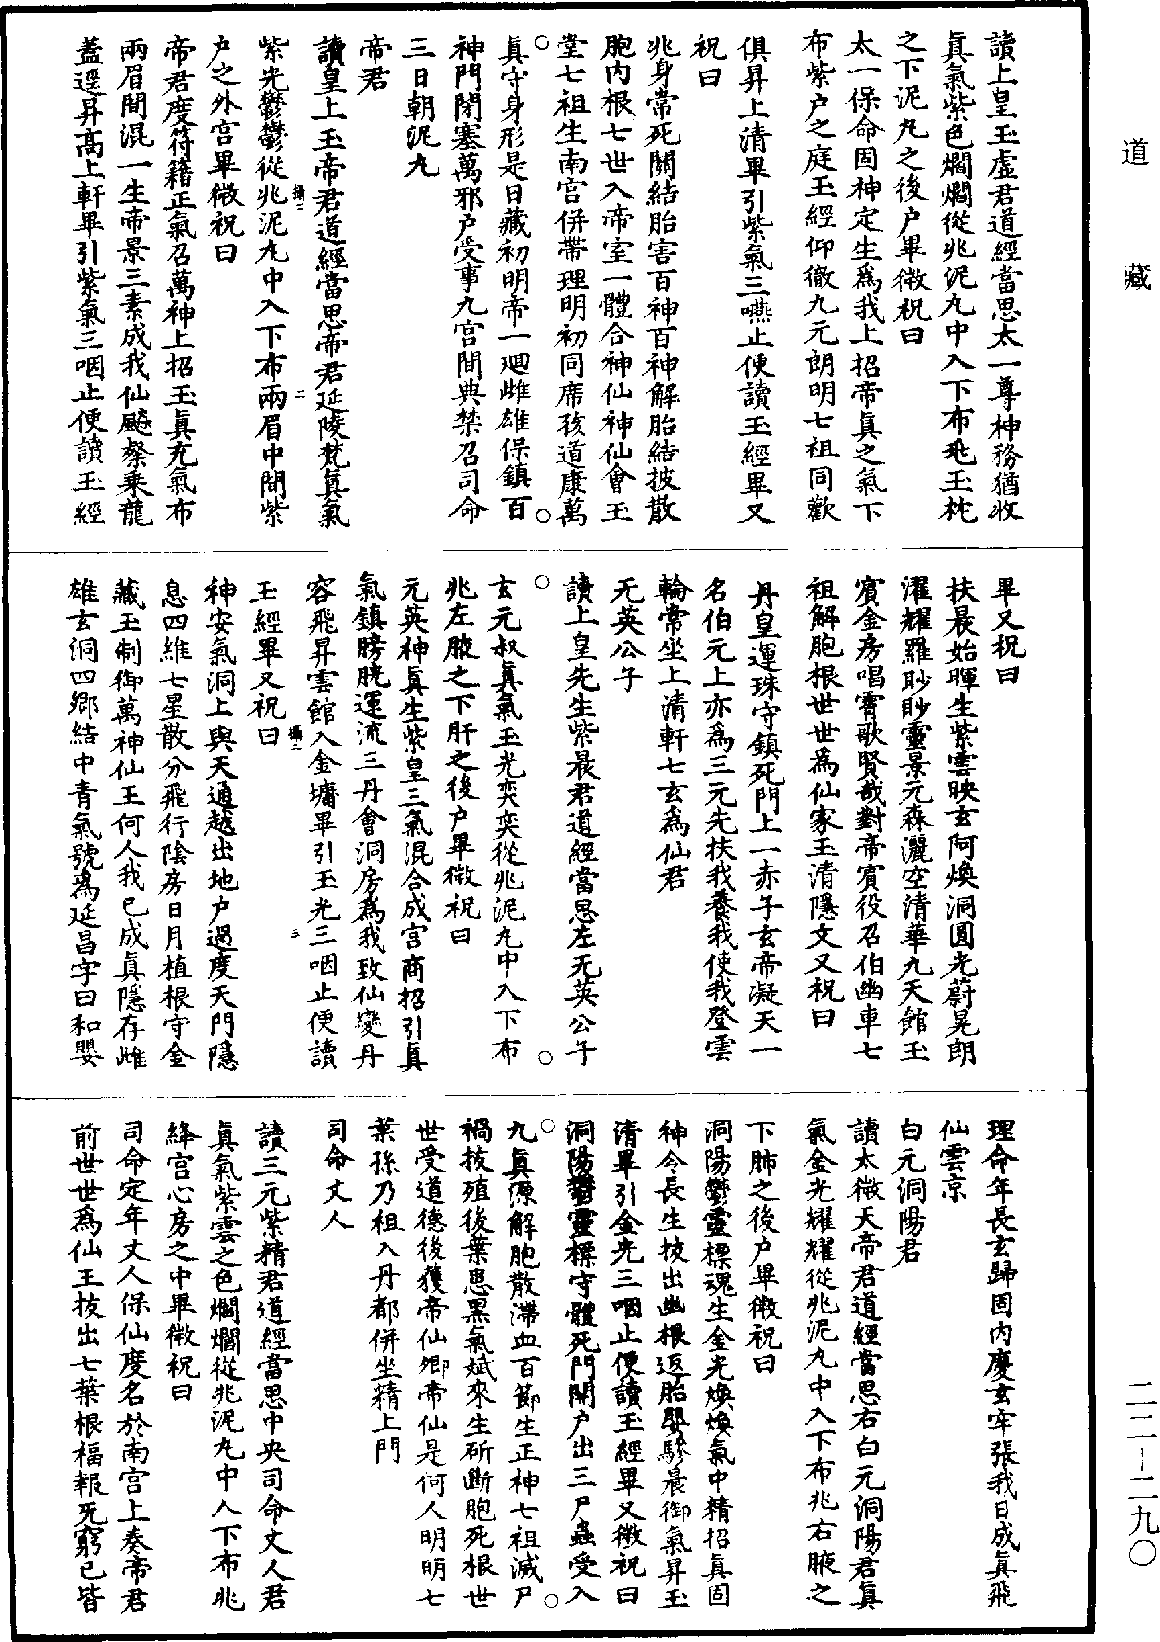 道藏
二二—二九〇
讀上皇玉虛君道經當思太一尊神務猶收
真氣紫色爓爓從兆泥丸中入下布兆玉枕
之下泥丸之後户畢微祝曰
太一保命固神定生為我上招帝真之氣下
布紫户之庭玉經仰徹九元朗明七祖同歡
俱昇上清畢引紫氣三嚥止便讀玉經畢又
祝曰
兆身常死關結胎害百神百神解胎結披散
胞内根七世入帝室一體合神仙神仙會玉
堂七祖生南宫併帶理明初同席孩道康萬
真守身形是日藏初明帝一廻雌雄保鎮百
神門閉塞萬邪户受事九宫間典禁召司命
三日朝泥丸
帝君
讀皇上玉帝君道經當思帝君延陵梵真氣
紫光鬱鬱從兆泥丸中入下布兩眉中間紫
户之外宫畢微祝曰
帝君度符籍正氣召萬神上招玉真充氣布
兩眉間混一生帝景三素成我仙飈粲乘龍
蓋逕昇高上軒畢引紫氣三咽止便讀玉經
畢又祝曰
扶晨始暉生紫雲映玄阿煥洞圓光蔚晃朗
濯耀羅眇眇靈景元森灑空清華九天館玉
賓金房唱霄歌賢哉對帝賓役召伯幽車七
祖解胞根世世為仙家玉清隱文又祝曰
丹皇運珠守鎮死門上一赤子玄帝凝天一
名伯元上亦為三元先扶我養我使我登雲
輪常坐上清軒七玄為仙君
无英公子
讀上皇先生紫晨君道經當思左无英公子
玄元叔真氣玉光奕奕從兆泥丸中入下布
兆左腋之下肝之後户畢微祝曰
元英神真生紫皇三氣混合成宫商招引真
氣鎮膀胱運流三丹會洞房為我致仙變丹
容飛昇雲館入金墉畢引玉光三咽止便讀
玉經畢又祝曰
神安氣洞上與天通越出地户過度天門隱
息四維七星散分飛行陰房日月植根守金
藏玉制御萬神仙王何人我已成真隱存雌
雄玄洞四鄉結中青氣號為延昌字曰和嬰
理命年長玄歸固内慶玄牢張我日成真飛
仙雲京
白元洞陽君
讀太微天帝君道經當思右白元洞陽君真
氣金光耀耀從兆泥丸中入下布兆右腋之
下肺之後户畢微祝曰
洞陽鬱靈標魂生金光煥煥氣中精招真固
神令長生拔出幽根返胎嬰驂晨御氣昇玉
清畢引金光三咽止便讀玉經畢又微祝曰
洞陽鬱靈標守體死門開户出三尸蟲受入
九真源解胞散滯血百節生正神七祖滅尸
禍拔殖後葉患黑氣斌來生斫斷胞死根世
世受道德後獲帝仙卿帝仙是何人明明七
葉孫乃祖入丹都併坐精上門
司命丈人
讀三元紫精君道經當思中央司命丈人君
真氣紫雲之色爓爓從兆泥丸中入下布兆
絳宫心房之中畢微祝曰
司命定年丈人保仙度名於南宫上奏帝君
前世世為仙王拔出七葉根福報无窮已皆